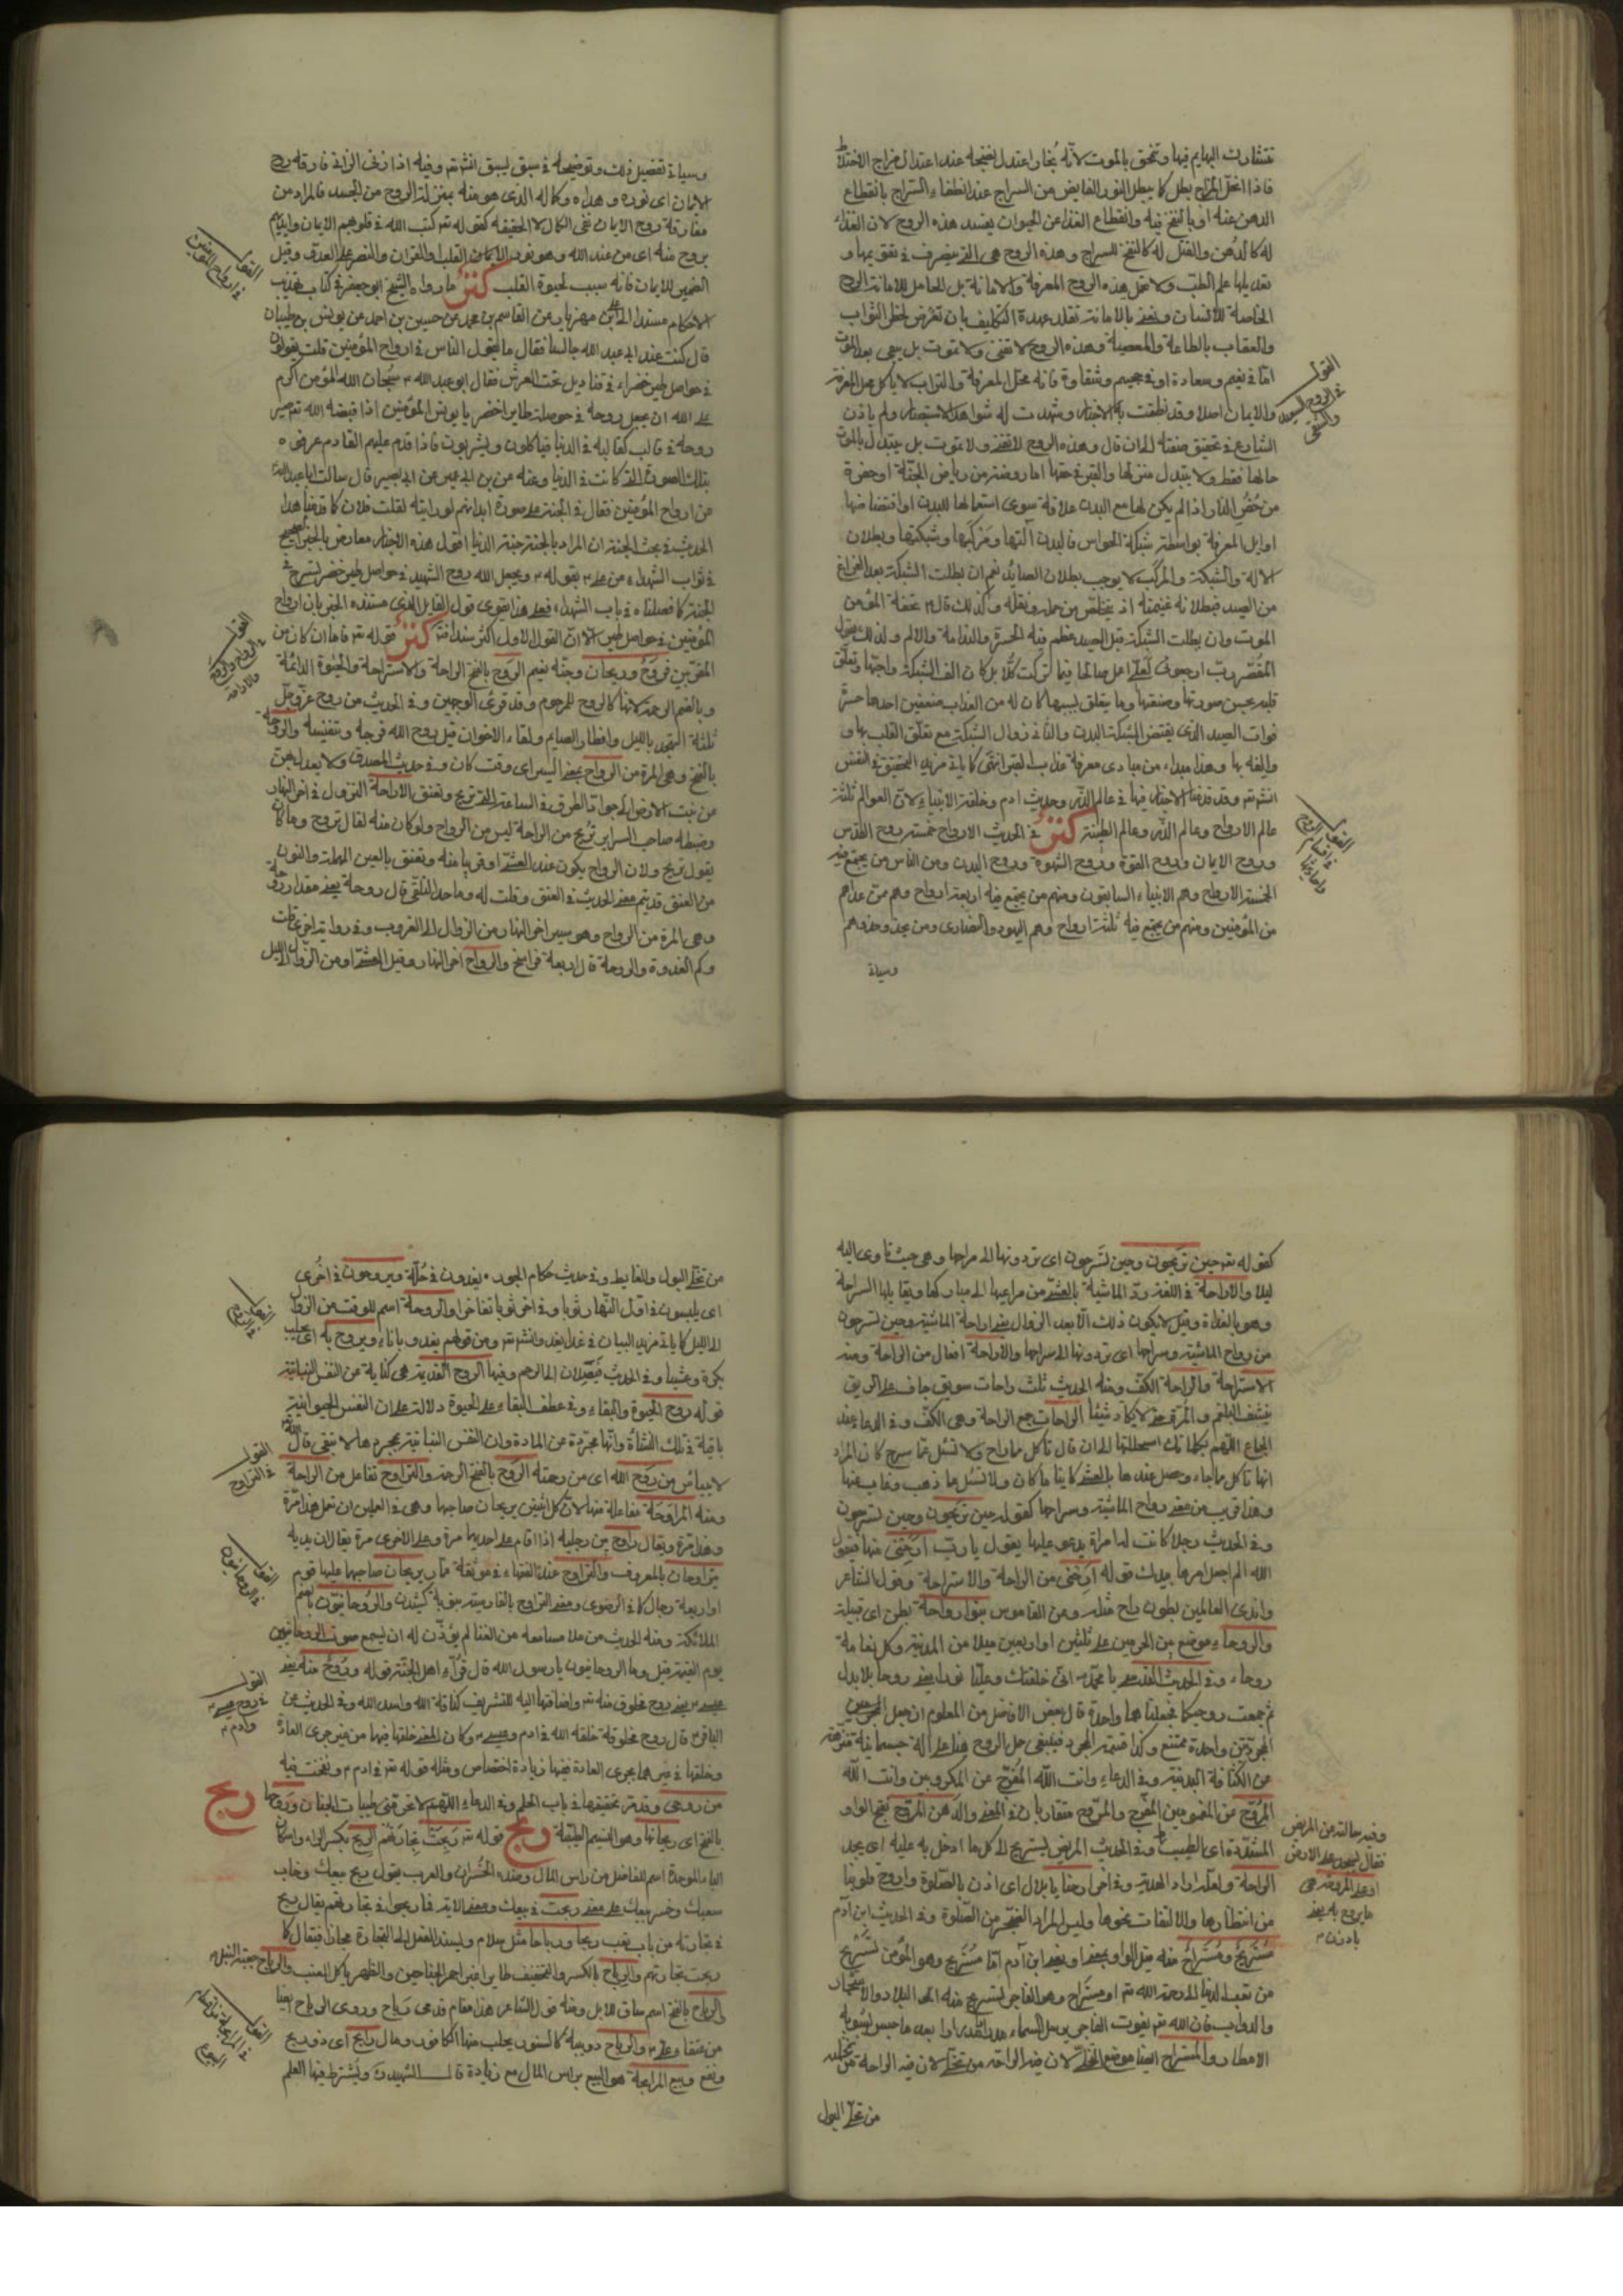 تتشارك البهايم فيها وتمحق بالموت لانه بخار اعتدل نضجه عند اعتدال مزاج الاخلاط
فاذا انحل المزاج بطل كما يبطل النور الفايض من السراج عند انطفاء السراج بانقطاع
الدهن عنه او بالنفخ فيه وانقطاع الغذا عن الحيوان يفسد هذه الروح لان الغذاء
له كالدهن والقتل له كالنفخ للسراج وهذه الروح هي التي يتصرف في تقويمها و
تعديلها علم الطب ولا تحمل هذه الروح المعرفة والامانة بل الحامل للامانة الروح
الخاصة للانسان ونعني بالامانة تقلد عهدة التكليف بان تعرض لخطر الثواب
والعقاب بالطاعة والمعصية وهذه الروح لا تفنى ولا تموت بل يبقى بعد الموت
اما في نعيم وسعادة او في جحيم وشقاوة فانه محل المعرفة والتراب لا ياكل محل المعرفة
والايمان اصلا وقد نطقت به الاخبار وشهدت له شواهد الاستبصار ولم ياذن
الشارع في تحقيق صفته الى ان قال وهذه الروح لا تفنى ولا تموت بل يتبدل بالموت
حالها فقط ولا يتبدل منزلها والقبر في حقها اما روضة من رياض الجنة او حفرة
من حفر النار اذ لم يكن لها مع البدن علاقة سوى استعمالها للبدن او اقتضاضها
اوايل المعرفة بواسطة شبكة الحواس فالبدن آلتها ومركبها وشبكتها وبطلان
الالة والشبكة والمركب لا يوجب بطلان الصايد نعم ان بطلت الشبكة بعد الفراغ
من الصيد فبطلانه غنيمة اذ يتخلص من حمله وثقله وكذلك قال ع تحفة المؤمن
الموت وان بطلت الشبكة قبل الصيد عظم فيه الحسرة والندامة والالم ولذلك يقول
المقصر رب ارجعوني لعلي اعمل صالحا فيما تركت كلا بل كان الف الشبكة واحبها وتعلق
قلبه بحسن صورتها وصنعتها وما يتعلق بسببها كان له من العذاب ضعفين احدها حسرة
فوات الصيد الذي يقتنص بشبكة البدن والثاني زوال الشبكة مع تعلق القلب بها و
والفه بها وهذا مبداء من مبادى معرفة عذاب القبر انتهى كما ياتي مزيد التحقيق في النفس
انشتم وقد قدمنا الاخبار فيها في عالم الذر وحديث ادم وخلقة الانبياء لان العوالم ثلثة
عالم الارواح وعالم الذر وعالم الطينة كنز في الحديث الارواح خمسة روح القدس
وروح الايمان وروح القوة وروح الشهوة وروح البدن ومن الناس من يجتمع فيه
الخمسة الارواح وهم الانبياء السابقون ومنهم من يجتمع فيه اربعة ارواح وهم من عداهم
من المؤمنين ومنهم من يجتمع فيه ثلثة ارواح وهم اليهود والنصارى ومن يحذو حذوهم
وسياتي
القول
في الروح السعيد
والشقي
القول
في اقسام الروح
وسياتي تفصيل ذلك وتوضيحه في سبق يسبق انشتم وفيه اذا زنى الزاني فارقه روح
الايمان اى نوره وهداه وكماله الذى هو منه بمنزلة الروح من الجسد فالمراد من
مفارقة روح الايمان نفي الكمال لا الحقيقة كقوله تم كتب الله في قلوبهم الايمان وايدهم
بروح منه اى من عند الله وهو نور الايمان القلب والقران والنصر على العدو وقيل
الضمير للايمان فانه سبب لحيوة القلب كنز ما رواه الشيخ ابو جعفر في كتاب تهذيب
الاحكام مسندا الى علي بن مهزيار عن القاسم بن محمد عن حسين بن احمد عن يونس بن ظبيان
قال كنت عند ابى عبد الله جالسا فقال ما يقول الناس في ارواح المؤمنين قلت يقولون
في حواصل طير خضراء في قناديل تحت العرش فقال ابو عبد الله ع سبحان الله المؤمن اكرم
على الله ان يجعل روحه في حوصلة طاير اخضر يا يونس المؤمنين اذا قبضه الله تم صير
روحه في قالب كقالبه في الدنيا فياكلون ويشربون فاذا قدم عليهم القادم عرفوه
بتلك الصورة التي كانت في الدنيا وعنه عن بن ابى عمير عن ابى بصير قال سالت ابا عبد الله
عن ارواح المؤمنين فقال في الجنة على صورة ابدانهم لو رايته لقلت فلان كما قدمنا هذا
الحديث في بحث الجنة ان المراد بالجنة جنة الدنيا اقول هذه الاخبار معارض بالخبر الصحيح
في ثواب الشهداء من على ع بقوله ع ويجعل الله روح الشهيد في حواصل طير خضر تسرح في
الجنة كما فصلناه في باب الشهداء فعلى هذا يتقوى قول القايل الذى مستنده الخبر بان ارواح
المؤمنين في حواصل طير الا ان القول الاول اكثر سندا فتم كنز قوله تم فاما ان كان من
المقربين فروح وريحان وجنة نعيم الروح بالفتح الراحة والاستراحة والحيوة الدائمة
وبالضم الرحمة لانها كالروح للمرحوم وقد قرئ الوجهين وفي الحديث من روح عز وجل
ثلثة التهجد بالليل وافطار الصايم ولقاء الاخوان قيل روح الله فرجه وتنفيسه والروحة
بالفتح وهي المرة من الرواح بمعنى السير اى وقت كان وفي حديث المصدق ولا يعدل بهن
عن نبت الارض الى جواد الطرق في الساعة التي تريح وتعنق الاراحة النزول في اخر النهار
وضبطه صاحب السراير تريح من الراحة ليس من الرواح ولو كان منه لقال تروح وما كان
يقول تريح ولان الرواح يكون عند العشى او قريبا منه وتعنق بالعين المهملة والنون
من العنق قد يتم معنى الحديث في العنق وقلت له وما حد التلقى قال روحة يعني مقدار روحة
وهي المرة من الرواح وهو سير اخر النهار من الزوال الى الغروب وفي رواية اخرى قلت
وكم الغدوة والروحة قال اربعة فراسخ والرواح اخر النهار وقيل العشى او من الزوال الى الليل
القول
في ارواح المؤمنين
القول
كقوله تم حين تريحون وحين تسرحون اى تردونها الى مراحها وهي حيث تاوى اليه
ليلا والاراحة في اللغة رد الماشية بالعشى من مراعيها الى مباركها ويقابلها السراحة
وهو بالغداة وقيل لا يكون ذلك الا بعد الزوال يعني اراحة الماشية وحين تسرحون
من رواح الماشية وسراحها اى تردونها الى مسراحها والاراحة افعال من الراحة ومنه
الاستراحة والراحة الكف ومنه الحديث ثلث راحات سويق جاف على الريق
ينشف البلغم والمرة حتى لا يكاد شيئا الراحات جمع الراحة وهي الكف وفي الدعاء عند
الجماع اللهم بكلماتك استحللتها الى ان قال تاكل مما راح ولا تسئل عما سرح كان المراد
انها تاكل مما جاء وحصل عندها بالعشى كاينا ما كان ولا تسئل عما ذهب وغاب عنها
وهذا قريب من معنى رواح الماشية وسراحها كقوله حين تريحون وحين تسرحون
وفي الحديث رجلا كانت له امراة يدعو عليها يقول يا رب ارحنى منها فيقول
الله الم اجعل امرها بيدك قوله ارحنى من الراحة والاستراحة وقول الشاعر
واندى العالمين بطون راح مثله ومن القاموس بنو رواحة بطن اى قبيلة
والروحاء موضع بين الحرمين على ثلثين او اربعين ميلا من المدينة وكل نعامة
روحاء وفي الحديث القدسى يا محمد ع انى خلقتك وعليا نورا يعنى روحا بلا بدن
ثم جمعت روحيكما فجعلتهما واحدة قال بعض الافاضل من المعلوم ان جعل
المجردتين واحدة ممتنع وكذا قسمة المجرد فينبغى حمل الروح هنا على آلة جسمانية منزهة
عن الكثافة البدنية وفي الدعاء وانت الله المفرج عن المكروبين وانت الله
المروح عن المغمومين المفرج والمروح متقاربان في المعنى والدهن المروح بفتح الواو
المشددة اى المطيب وفي الحديث المريض يستريح الى كل ما ادخل به عليه اى يجد
الراحة ولعله اراد الهدية وفي اخر ارحنا يا بلال اى اذن بالصلوة واروح قلوبنا
من انتظارها والالتفات نحوها وليس المراد التفجر من الصلوة وفي الحديث ابن آدم
مستريح ومستراح منه قيل الواو بمعنى او يعنى ابن آدم اما مستريح وهو المؤمن تستريح
من تعب الدنيا الى رحمة الله تم او مستراح وهو الفاجر تستريح منه اهل البلاد والاشجار
والدواب فان الله تم بفوت الفاجر يرسل السماء مدرارا بعد ما حبس بشومه
الامطار والمستراح ايضا موضع التخلى لان فيه الراحة من تخلى لان فيه الراحة من تخلى
من تخلى البول
وفيه سالته عن المريض
فقال يسجد على الارض
او على المروحة هي
ما يروح به يعنى
بادزن
من تخلى البول والغايط وفي حديث حكام الجور يغدون في حلة ويروحون في اخرى
اى يلبسون في اول النهار ثوبا وفي اخره ثوبا تفاخرا والروحة اسم للوقت من الزوال
الى الليل كما ياتي مزيد البيان في غدا يغدو انشتم ومن قولهم يغدو باناء ويروح به اى يحلب
بكرة وعشيا وفي الحديث وفيها الروح القديمة هي كناية عن النفس النباتية
قوله روح الحيوة والبقاء وفي عطف البقاء على الحيوة دلالة على ان النفس الحيوانية
باقية في تلك النشاة وانها مجردة عن المادة وان النفس النباتية بمجردها لا تبقى قال الله
لا ييأس من روح الله اى من رحمته الروح بالفتح الرحمة والتراوح تفاعل من الراحة
ومنه المراوحة مفاعلة منها لان كلا اثنين يريحان صاحبها وهي في العملين ان تعمل هذا مرة
وهذا مرة ويقال راوح بين رجليه اذا قام على احديهما مرة وعلى الاخرى مرة يقال ان يديه
يتراوحان بالمعروف والتراوح عند الفقهاء في موثقة عمار يريحان صاحبهما عليها قوم
او اربعة رجال كما في الرضوى ومعنى التراوح بالفارسية بنوبة كشيدن والروحانيون بالضم
الملائكة ومنه الحديث من ملا مسامعه من الغنا لم يؤذن له ان يسمع صوت الروحانيين
يوم القيمة قيل وما الروحانيون يا رسول الله قال قراء اهل الجنة قوله وروح منه يعنى
عيسى ع يعنى روح مخلوق منه تم واضافتها اليه للتشريف كناقة الله واسد الله وفي الحديث عن
الباقر ع قال روح مخلوقة خلقه الله في ادم وعيسى ع وكان المعنى خلقها فيهما من غير جرى العادة
وخلقها في غيرهما بجرى العادة ففيها زيادة اختصاص ومثله قوله تم في ادم ع ونفخت فيه
من روحى وقد مر تحقيقها في باب الحلم وفي الدعاء اللهم لا تحرقنى طيبات الجنان وروحها
بالفتح اى ريحانها وهو النسيم الطيبة ربح قوله تم ربحت تجارتهم الربح بكسر الراء واسكان
الباء الموحدة اسم للفاضل من راس المال وضده الخسران والعرب يقول ربح بيعك وخاب
سعيك وخسر بيعك على معنى ربحت في بيعك ومعنى الاية فما ربحوا في تجارتهم يقال ربح
في تجارته من باب تعب ربحا ورباحا مثل سلام ويسند الفعل الى التجارة مجازا فيقال كما
ربحت تجارتهم والرباح بالكسر والتخفيف طاير اغبر احمر الجناحين والظهر ياكل العنب
والرباح بالفتح اسم ساق للابل ومنه قول الشاعر هذا مقام قدمى رباح وروى الرباح ايضا
من عتقاء على ع والرباح دويبة كالسنور يحلب منها الكافور ومال رابح اى ذو ربح
ونفع وبيع المرابحة هو البيع براس المال مع زيادة قال الشهيد ره ويشترط فيها العلم
القول
في التراوح
القول
في الروحانيون
القول
في روح عيسى ع
وادم ع
ربح